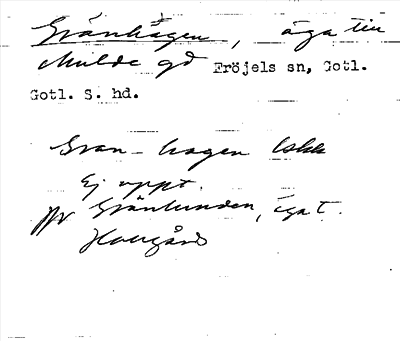 Granhagen, äga till
Mulde gd Fröjels sn, Gotl.
Gotl. S. hd.
Gran-hagen
Ej uppt.
jfr Granlunden, äga t.
Haugård